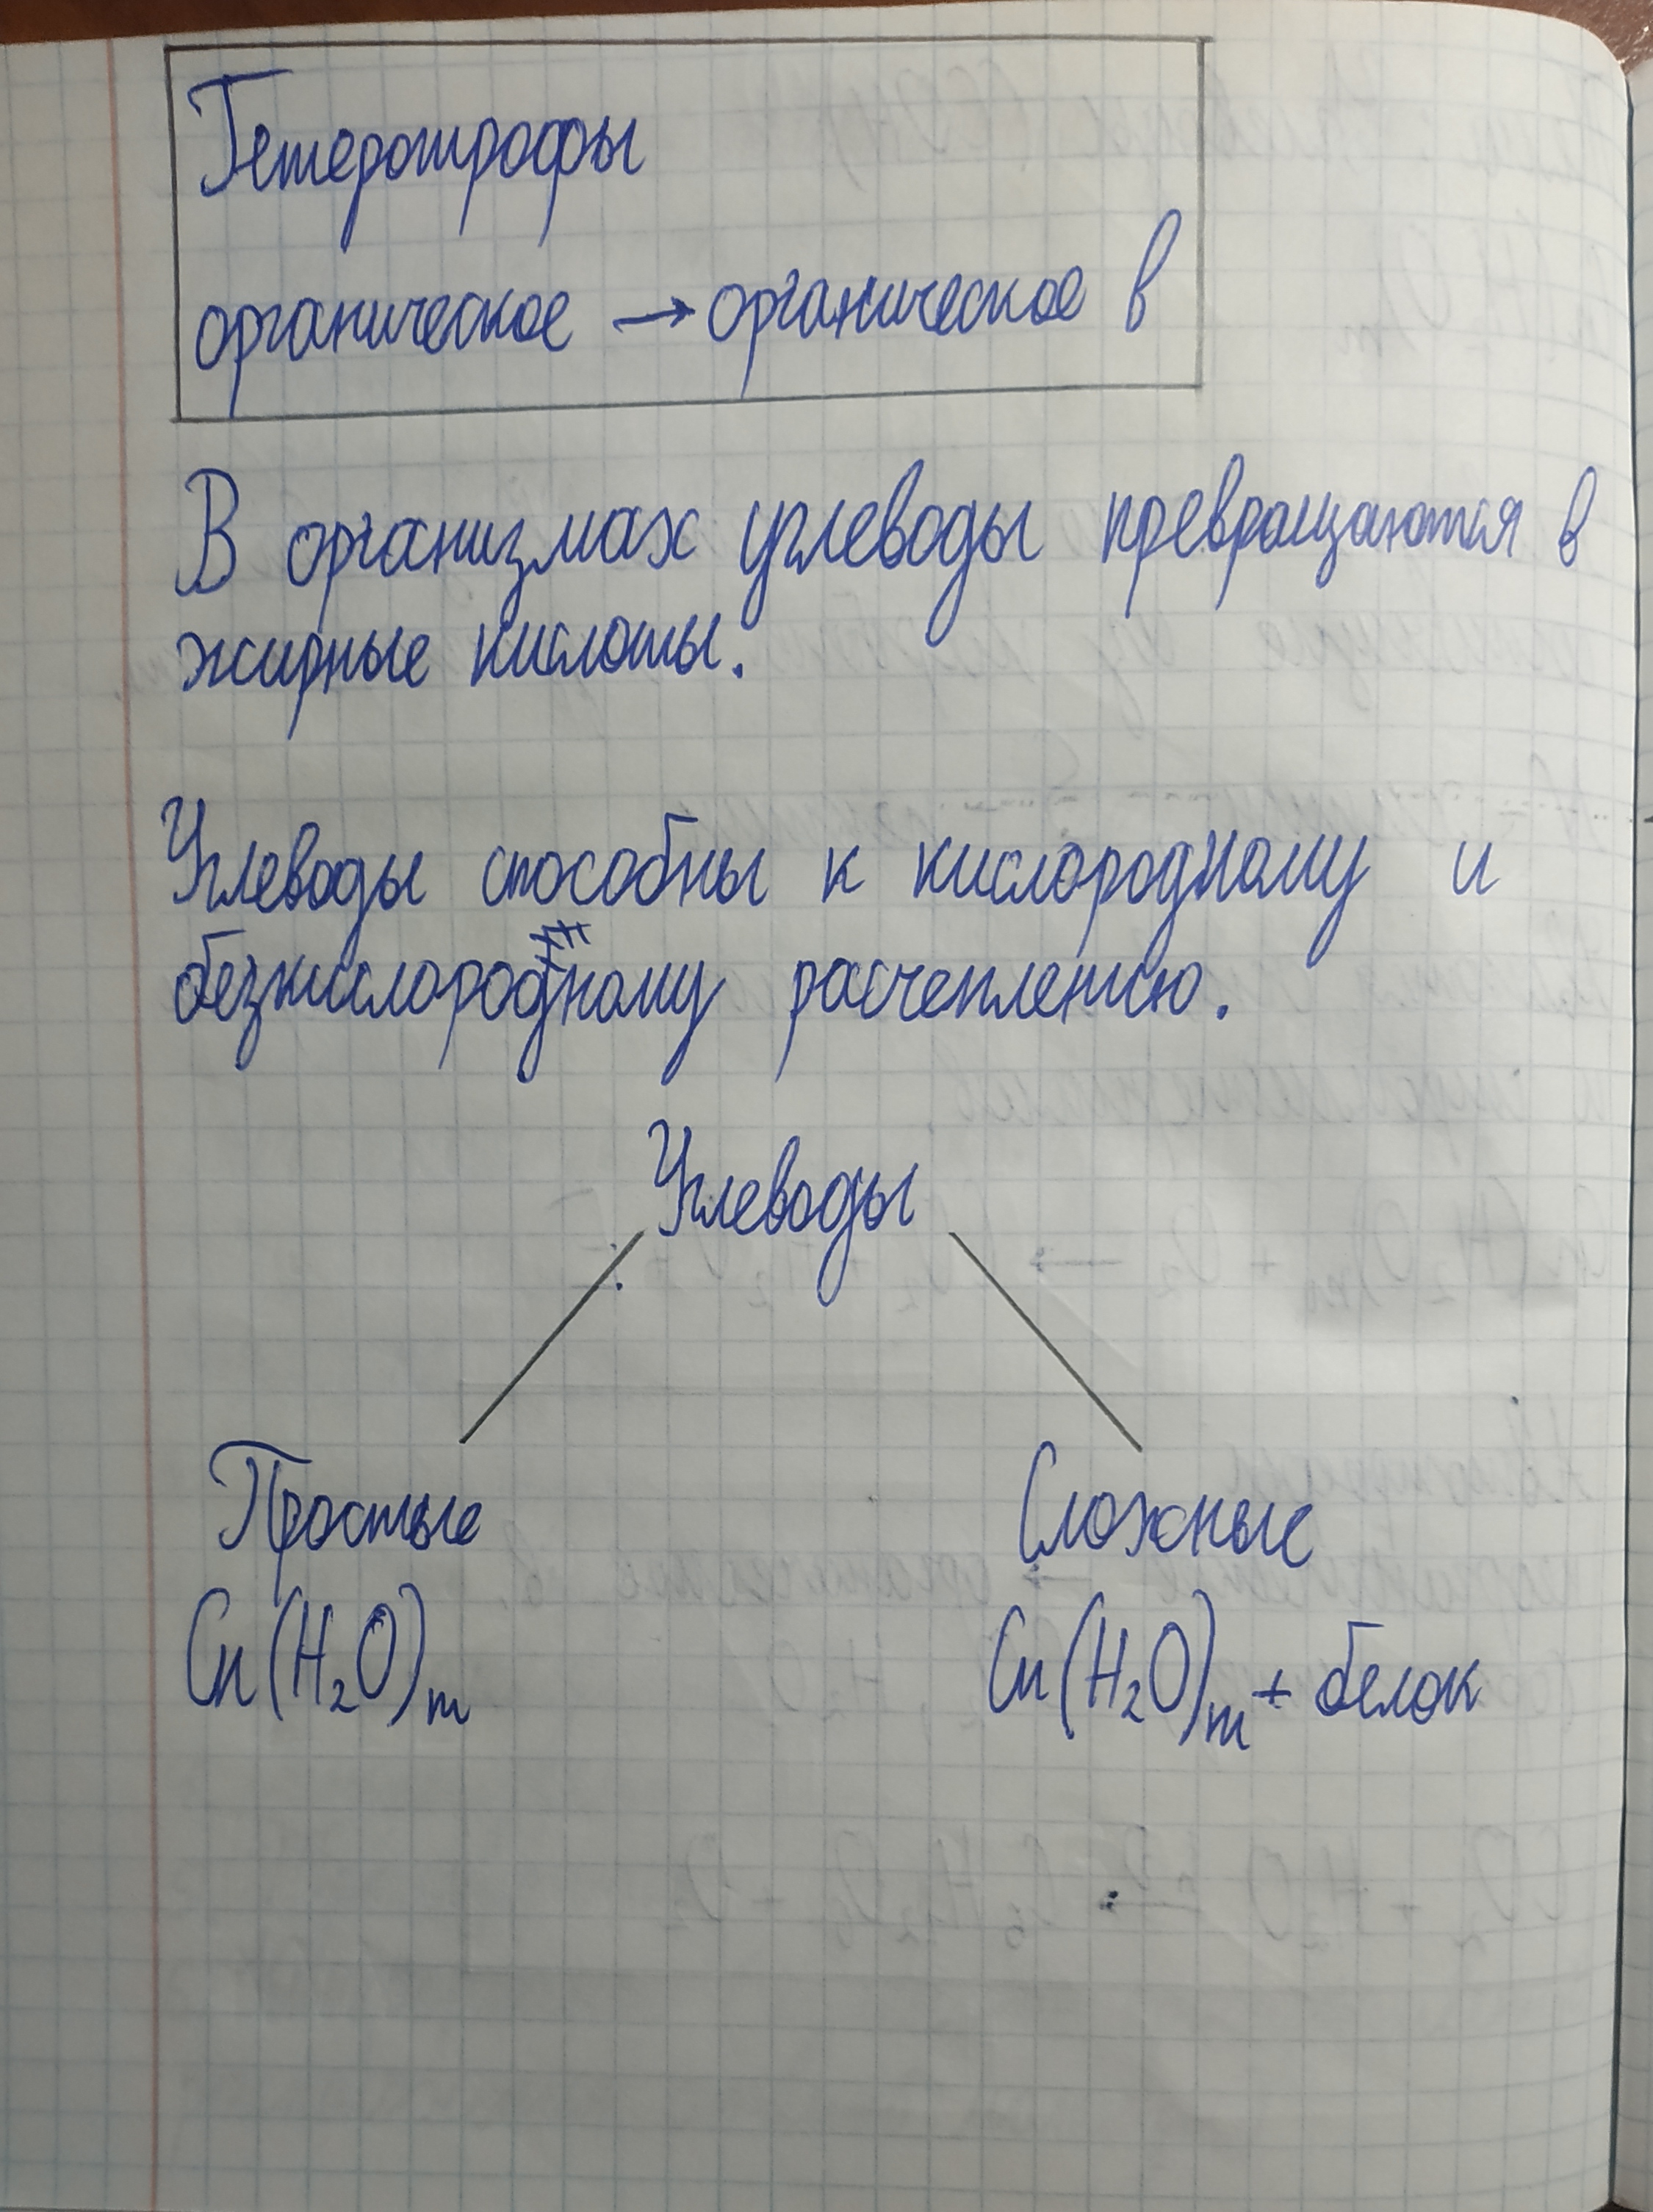 Гетеротрофы
органическое → органическое в
В организмах углеводы превращаются в
жирные кислоты.
Углеводы способны к кислородному и
безкислородному расчеплению.
Углеводы
Простые Сложные
Cn(H₂O)m Cn(H₂O)m + белок